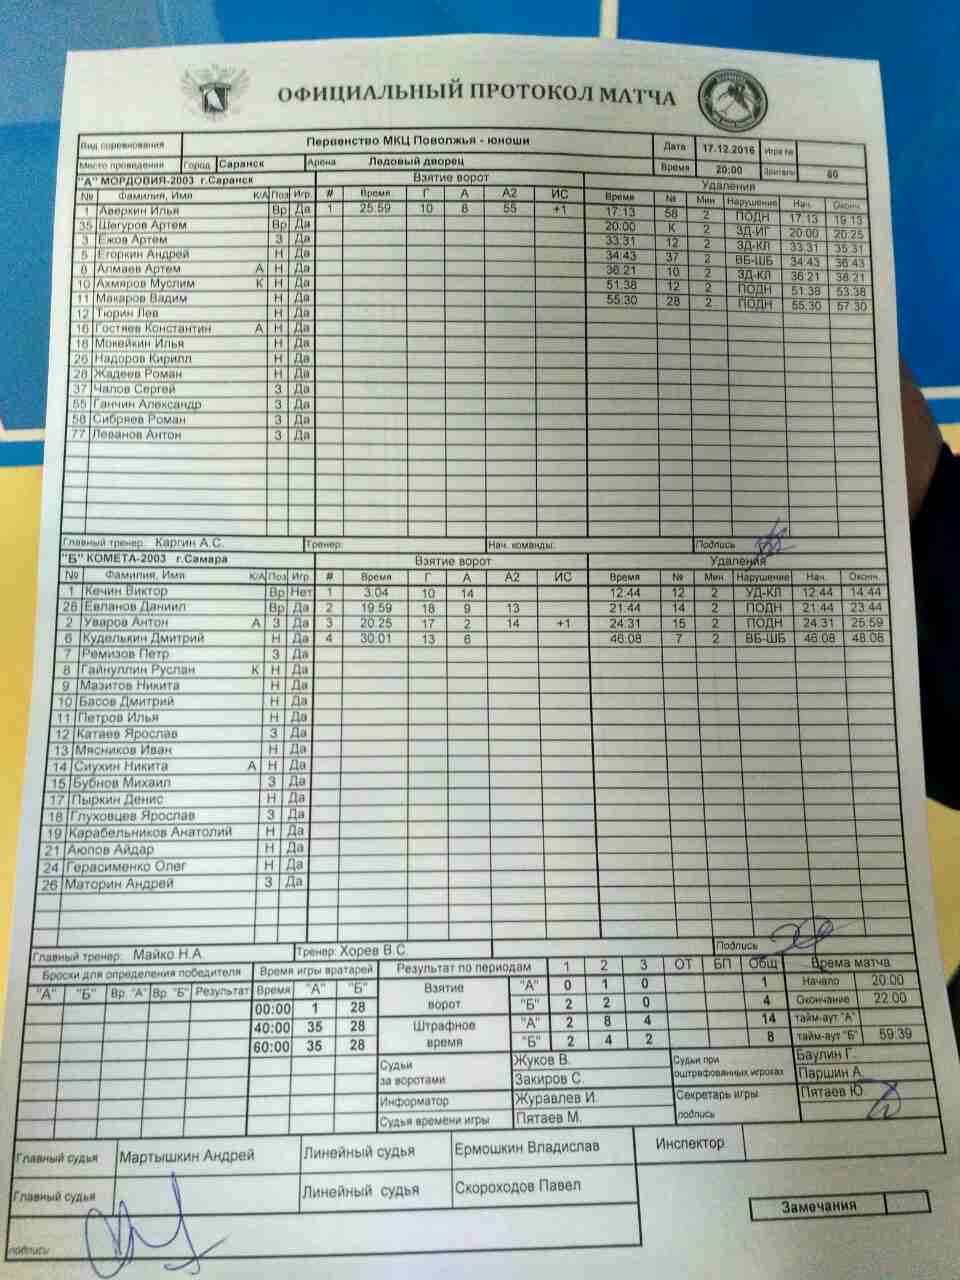 ОФИЦИАЛЬНЫЙ ПРОТОКОЛ МАТЧА
Вид соревнования Первенство МКЦ Поволжья - юноши Дата 17.12.2016 Игра №
Место проведения Город Саранск Арена Ледовый дворец Время 20:00 Зрители 80
"А" МОРДОВИЯ-2003 г.Саранск Взятие ворот Удаления
№ Фамилия, Имя К/А Поз Игр. # Время Г А А2 ИС Время № Мин Нарушение Нач. Оконч.
1 Аверкин Илья Вр Да 1 25:59 10 8 55 +1 17:13 58 2 ПОДН 17:13 19:13
35 Шегуров Артем Вр Да 20:00 К 2 ЗД-ИГ 20:00 20:25
3 Ежов Артем З Да 33:31 12 2 ЗД-КЛ 33:31 35:31
5 Егоркин Андрей Н Да 34:43 37 2 ВБ-ШБ 34:43 36:43
8 Алмаев Артем А Н Да 36:21 10 2 ЗД-КЛ 36:21 38:21
10 Ахмяров Муслим К Н Да 51:38 12 2 ПОДН 51:38 53:38
11 Макаров Вадим Н Да 55:30 28 2 ПОДН 55:30 57:30
12 Тюрин Лев Н Да
16 Гостяев Константин А Н Да
18 Мокейкин Илья Н Да
26 Надоров Кирилл Н Да
28 Жадеев Роман Н Да
37 Чалов Сергей З Да
55 Ганчин Александр З Да
58 Сибряев Роман З Да
77 Леванов Антон З Да
Главный тренер: Каргин А.С. Тренер: Нач. команды: Подпись
"Б" КОМЕТА-2003 г.Самара Взятие ворот Удаления
№ Фамилия, Имя К/А Поз Игр. # Время Г А А2 ИС Время № Мин. Нарушение Нач. Оконч.
1 Кечин Виктор Вр Нет 1 3:04 10 14 12:44 12 2 УД-КЛ 12:44 14:44
28 Евланов Даниил Вр Да 2 19:59 18 9 13 21:44 14 2 ПОДН 21:44 23:44
2 Уваров Антон А З Да 3 20:25 17 2 14 +1 24:31 15 2 ПОДН 24:31 25:59
6 Куделькин Дмитрий Н Да 4 30:01 13 6 46:08 7 2 ВБ-ШБ 46:08 48:08
7 Ремизов Петр З Да
8 Гайнуллин Руслан К Н Да
9 Мазитов Никита Н Да
10 Басов Дмитрий Н Да
11 Петров Илья Н Да
12 Катаев Ярослав З Да
13 Мясников Иван Н Да
14 Сиухин Никита А Н Да
15 Бубнов Михаил З Да
17 Пыркин Денис Н Да
18 Глуховцев Ярослав З Да
19 Карабельников Анатолий Н Да
21 Аюпов Айдар Н Да
24 Герасименко Олег Н Да
26 Маторин Андрей З Да
Главный тренер: Майко Н.А. Тренер: Хорев В.С. Подпись
Броски для определения победителя Время игры вратарей Результат по периодам 1 2 3 ОТ БП Общ Время матча
"А" "Б" Вр "А" Вр "Б" Результат Время "А" "Б" Взятие ворот "А" 0 1 0 1 Начало 20:00
00:00 1 28 "Б" 2 2 0 4 Окончание 22:00
40:00 35 28 Штрафное время "А" 2 8 4 14 тайм-аут "А"
60:00 35 28 "Б" 2 4 2 8 тайм-аут "Б" 59:39
Судьи за воротами Жуков В. Судьи при оштрафованных игроках Баулин Г.
Закиров С. Паршин А.
Информатор Журавлев И. Секретарь игры подпись Пятаев Ю.
Судья времени игры Пятаев М.
Главный судья Мартышкин Андрей Линейный судья Ермошкин Владислав Инспектор
Главный судья Линейный судья Скороходов Павел
Замечания
подписи